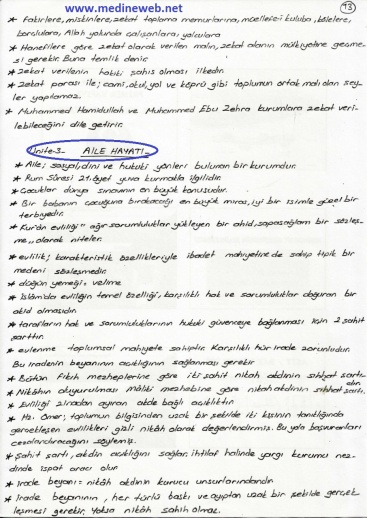 www.medineweb.net
93
* Fakirlere, miskinlere, zekat toplama memurlarına, müellefe-i kuluba, kölelere,
borçlulara, Allah yolunda çalışanlara, yolculara
* Hanefilere göre zekat olarak verilen malın, zekat alanın mülkiyetine geçme-
si gerekir. Buna temlik denir.
* Zekat verilenin hakiki şahıs olması ilkedir.
* Zekat parası ile; cami, okul, yol ve köprü gibi toplumun ortak malı olan şey-
ler yapılamaz.
* Muhammed Hamidullah ve Muhammed Ebu Zehra kurumlara zekat veri-
lebileceğini dile getirir.
Ünite-3- AİLE HAYATI-
* Aile; sosyal, dini ve hukuki yönleri bulunan bir kurumdur.
* Rum Sûresi 21. âyet yuva kurmakla ilgilidir.
* Çocuklar dünya sınavının en büyük konusudur.
* Bir babanın çocuğuna bırakacağı en büyük miras, iyi bir isimle güzel bir
terbiyedir.
* Kur'ân evliliği "ağır sorumluluklar yükleyen bir ahid, sapasağlam bir sözleş-
me,, olarak niteler.
* evlilik; karakteristik özellikleriyle ibadet mahiyetine de sahip tipik bir
medeni sözleşmedir.
* düğün yemeği: velime
* İslâmda evliliğin temel özelliği, karşılıklı hak ve sorumluluklar doğuran bir
akid olmasıdır.
* tarafların hak ve sorumluluklarının hukuki güvenceye bağlanması için 2 şahit
şarttır.
* evlenme toplumsal mahiyete sahiptir. Karşılıklı hür irade zorunludur.
Bu iradenin beyanının açıklığının sağlanması gerekir
* Bütün fıkıh mezheplerine göre iki şahit nikah akdinin sıhhat şartı-
dır.
* Nikâhın duyurulması Mâliki mezhebine göre nikah akdinin sıhhat şartı.
* Evliliği zinadan ayıran akde bağlı açıklıktır
* Hz. Ömer, toplumun bilgisinden uzak bir şekilde iki kişinin tanıklığında
gerçekleşen evlilikleri gizli nikâh olarak değerlendirmiş. Bu yola başvuranları
cezalandıracağını söylemiş.
* Şahit şartı, akdin açıklığını sağlar. ihtilaf halinde yargı kurumu nez-
dinde ispat aracı olur
* İrade beyanı = nikâh akdinin kurucu unsurlarındandır.
* İrade beyanının, her türlü baskı ve ayıptan uzak bir şekilde gerçek-
leşmesi gerekir. Yoksa nikâh sahih olmaz.